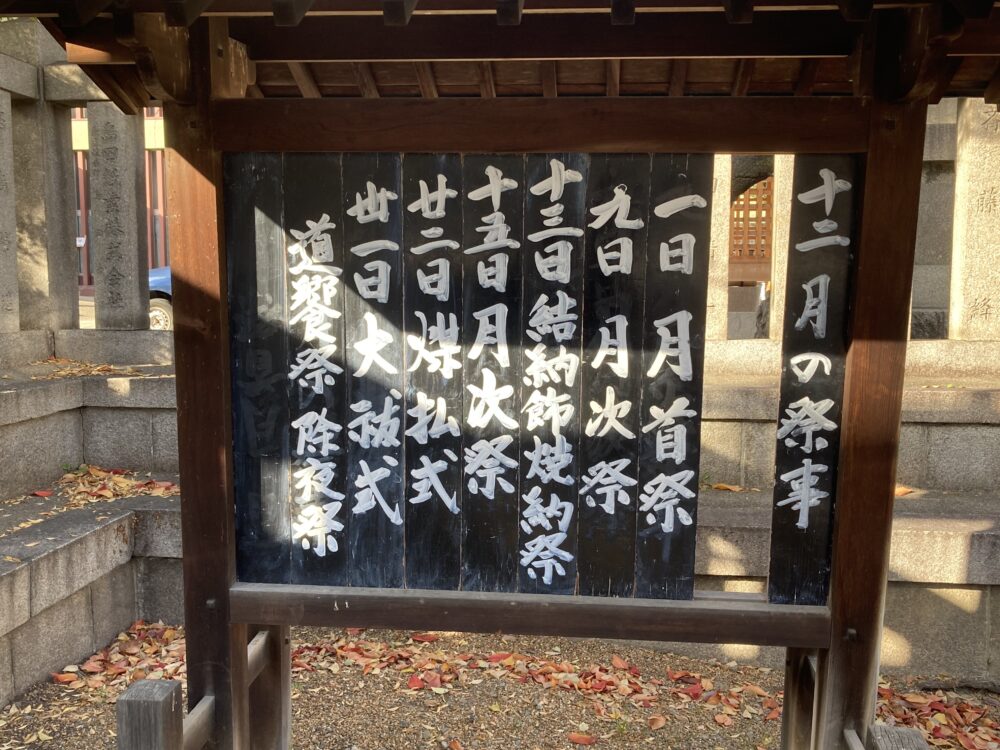 十二月の祭事
一日月首祭
九日月次祭
十三日結納飾焼納祭
十五日月次祭
廿二日煤払式
卅一日大祓式
道饗祭 除夜祭